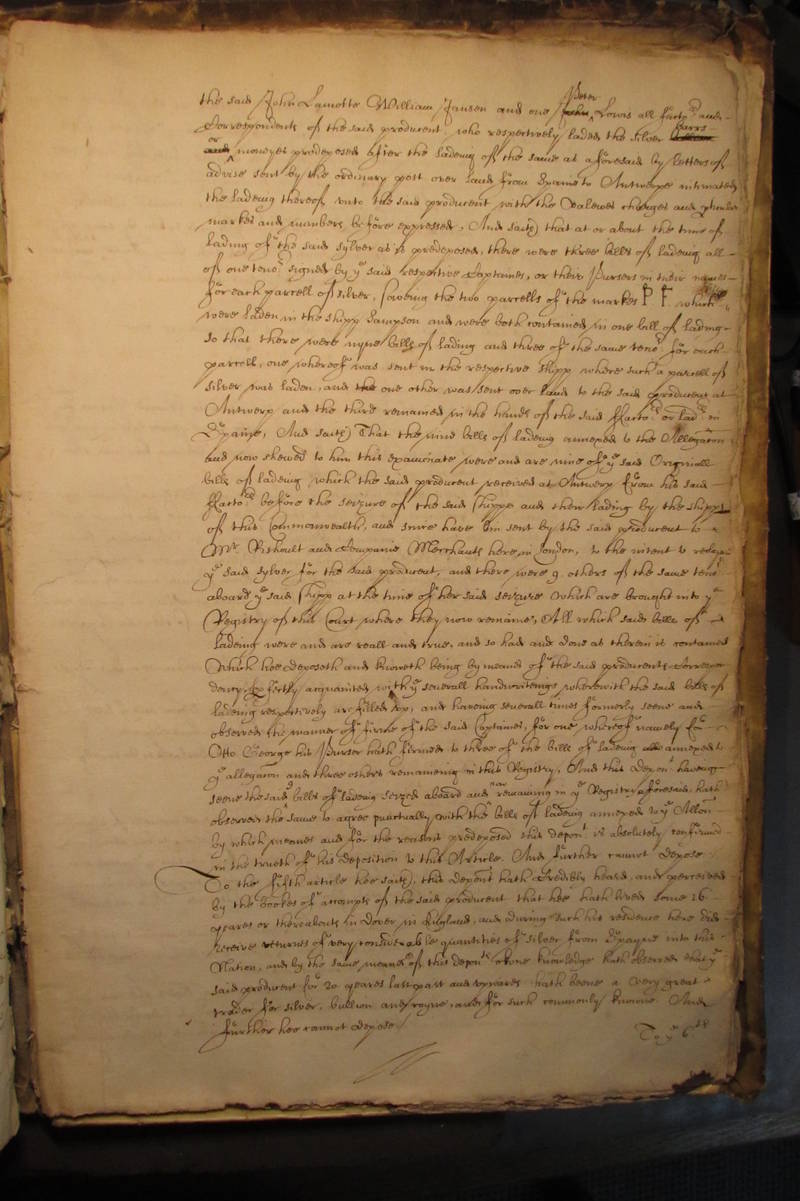 the said John Lamotte William Jansen and one John Peter Lowis all facto:rs and
Correspondents of the said producent who respectively laded the silver barrs
and or moneyes predeposed after the ladeing of the same as aforesaid by letters of
advise sent by the ordinary post over land from Spaine to Antwerpe intimated
the ladeing thereof unto the said producent with the Valewes charges and
markes and numbers before expressed, And saith that at or about the time of
lading of the said sylver as is predeposed, there were three bills of ladeing all
of one teno:r signed by ye said respective Captaines, or their Pursers in their names
for each parcell of silver, saveing the two parcells of the markes P F which
were laden in the shipp Sampson and were both contained in one bill of lading
so that there were nyne bills of lading and three of the same teno:r for each
parcell, one whereof was sent in the respective shipp where such a parcell of
silver was laden, and the one other was sent over land to the said producent at
Antwerp and the third remained in the hands of the said ffacto:rs or lad:rs in
Spaine, And saith That the nine bills of ladeing annexed to the Allegation
and now shewed to him this examinate were and are nine of ye said Originall
bills of ladeing which the said producent received at Antwerp from his said
ffacto:rs before the seizure of the said shipps and their lading by the shipps
of this Commonwealth, and since have bin sent by the said producent to
Mr Rishault and Companie Merchants here in London, to the intent to
ye said sylver for the said producent, and there were 9 others of the same teno:r
aboard ye said shipp at the time of her said seizure which are brought into ye
Registry of this Court where they now remaine, All which said bills of
ladeing were and are reall and true, and so had and done as therein is contained
Which hee deposeth and knoweth being by meanes of the said producents Correspon
dency perfectly acquainted with ye severall handwriteings wherewith the said bills of
ladeing respectively are filled up, and haveing severall times formerly seene and
observed the manner of firme of the said Captaines, for one whereof namely for
Otto George his Purser hath firmed to three of the bills of ladeing annexed to
ye allegation and three others remaineing in this Registry, And this depon:t haveing
seene the said 9 bills of ladeing seized aboard and now remaining in ye Registry aforesaid hath
observed the same to agree punctually with the bills of ladeing annexed to ye Allon
by which meanes and for the reasons predeposed this depon:t is absolutely confirmed
in the trueth of his deposition to this Article. And further cannot depose
To the fifth article hee saith, this depon:t hath Credibly heard, and perceived
by the bookes of accompts of the said producent that hee hath lived some 16
yeares or thereabouts in Dover in England, and during such his residence here did
receive returnes of very considerable quantities of silver from Spayne into this
Nation, and by the same meanes of this depon:ts owne knowledge hath observed that ye
said producent for 20 yeares last past and upwards hath beene a very great
trader for silver, bullion and coyne, and for such commonly knowne. And
further hee cannot depose
To ye 6:th